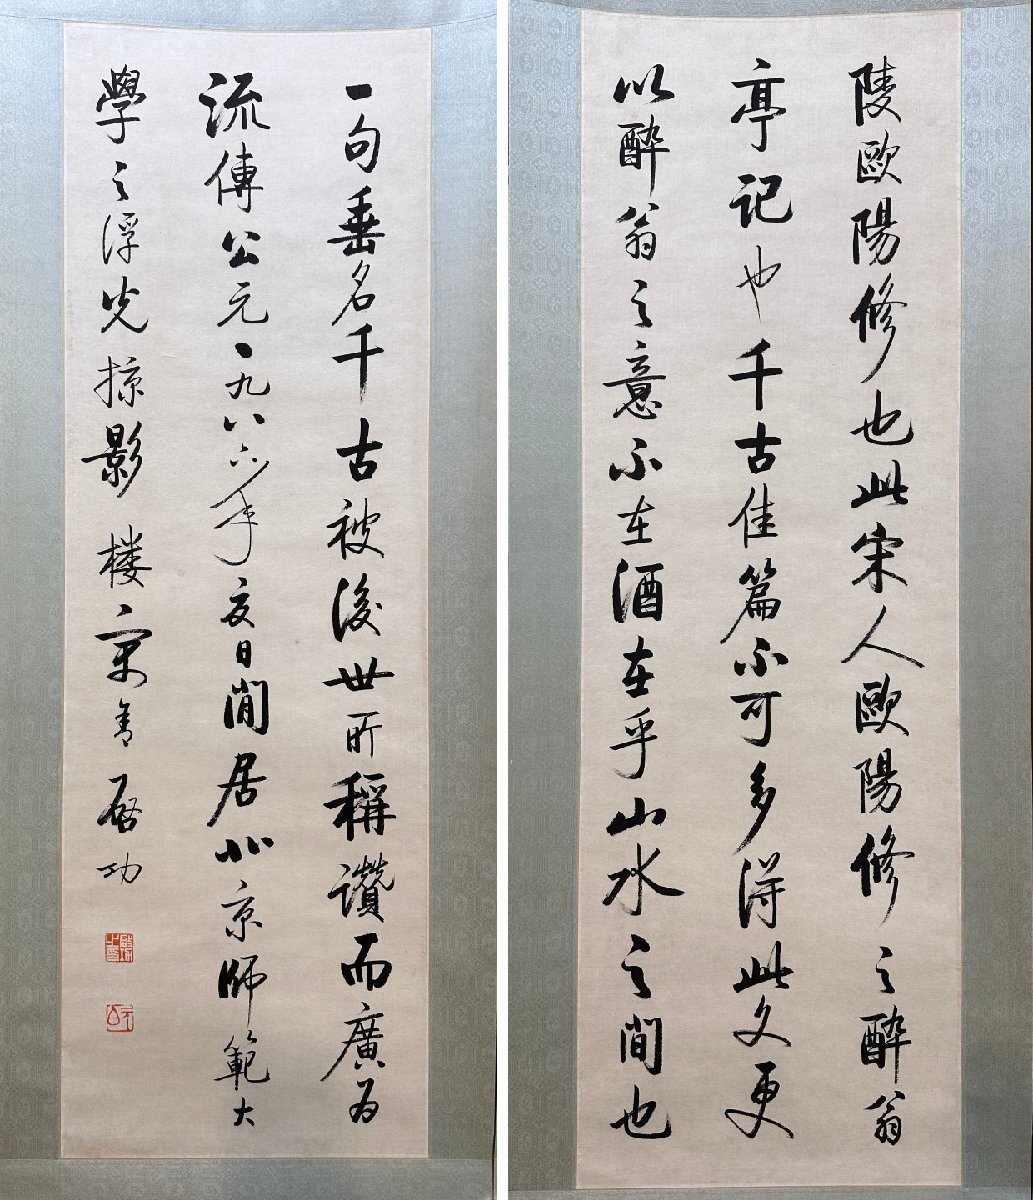 陵歐陽修也此宋人歐陽修之醉翁
亭記也千古佳篇不可多得此文更
以醉翁之意不在酒在乎山水之間也
一句垂名千古被後世所稱讚而廣為
流傳公元一九八六年夏日閒居北京師範大
學之浮光掠影樓寓書啟功